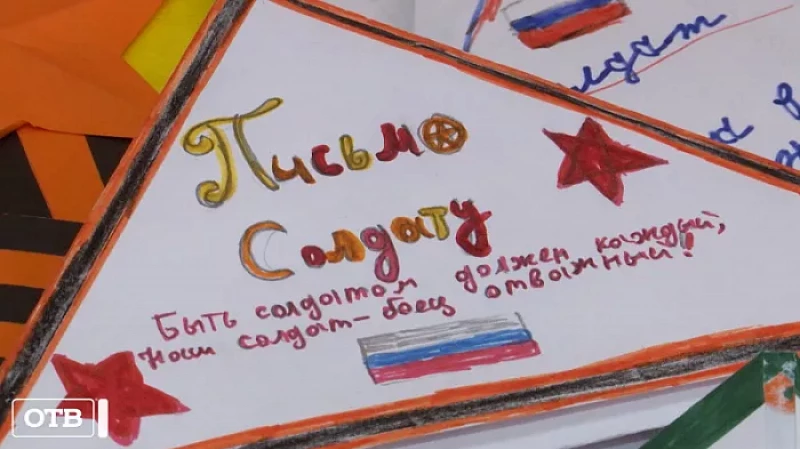 Письмо
Солдату
Быть солдатом должен каждый,
Наш солдат-боец отважный!
ОТВ